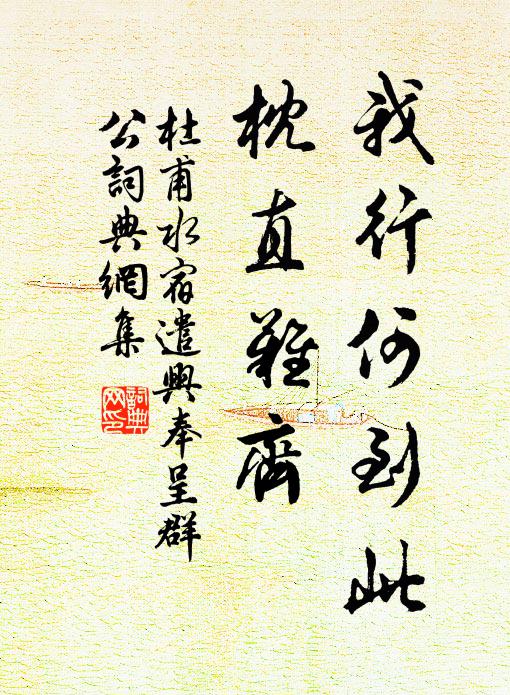 我行何到此
枕直難齊
杜甫水宿遣興奉呈群
公詞典網集
詞典
网印